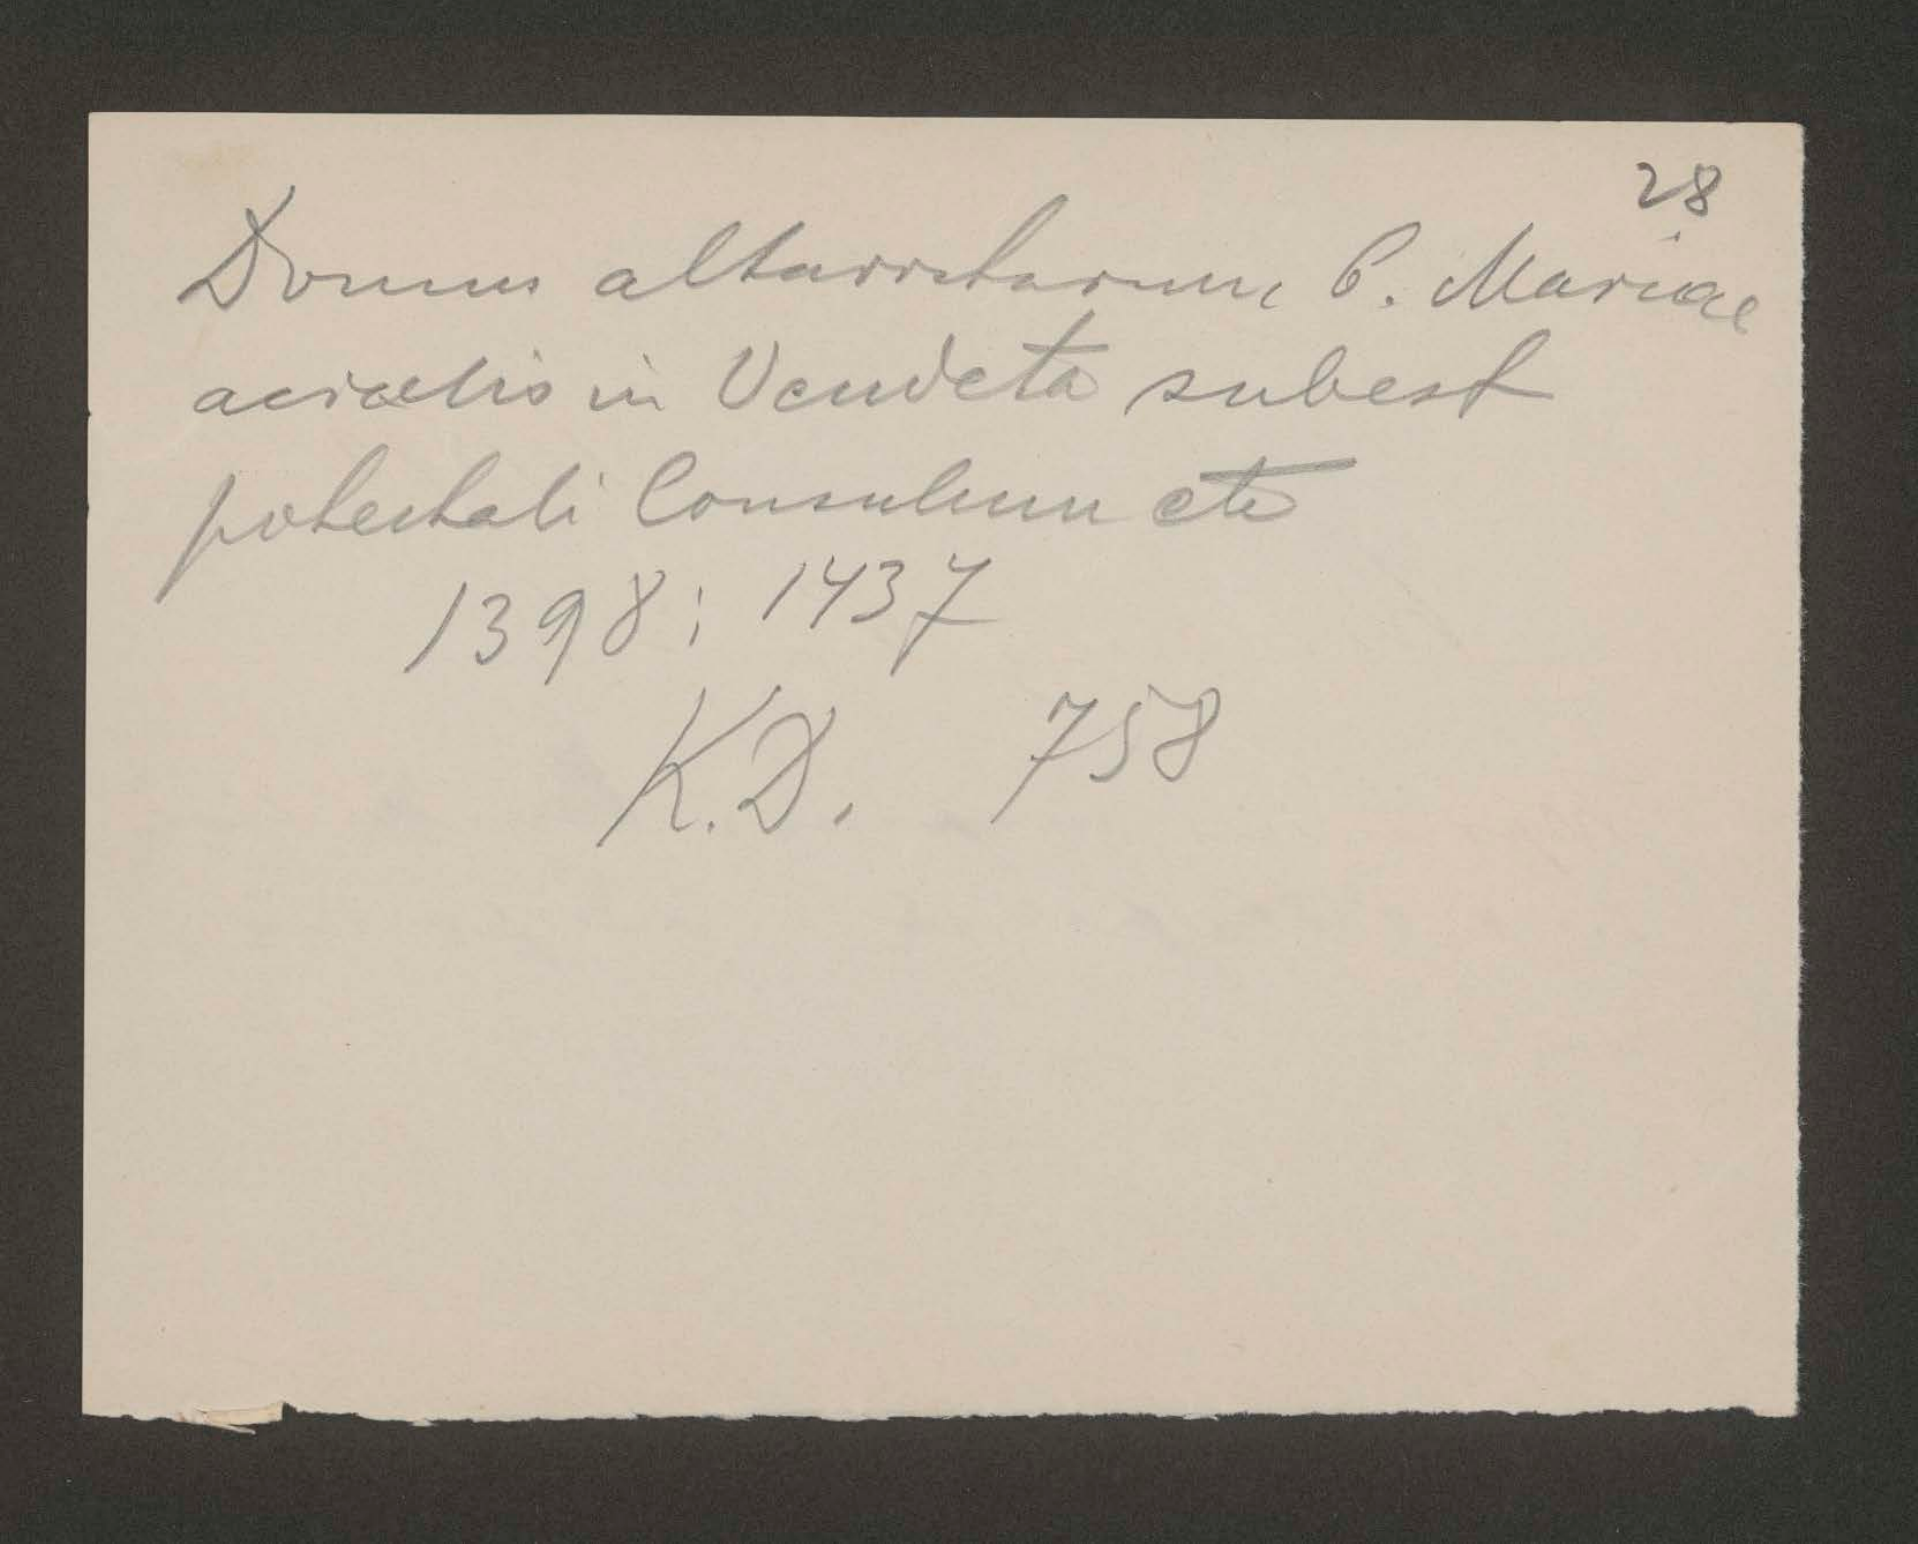 28
Domus altaristarum B. Mariae
acialis in Vendeta subest
potestati Consulum etc
1398; 1437
K.D. 758